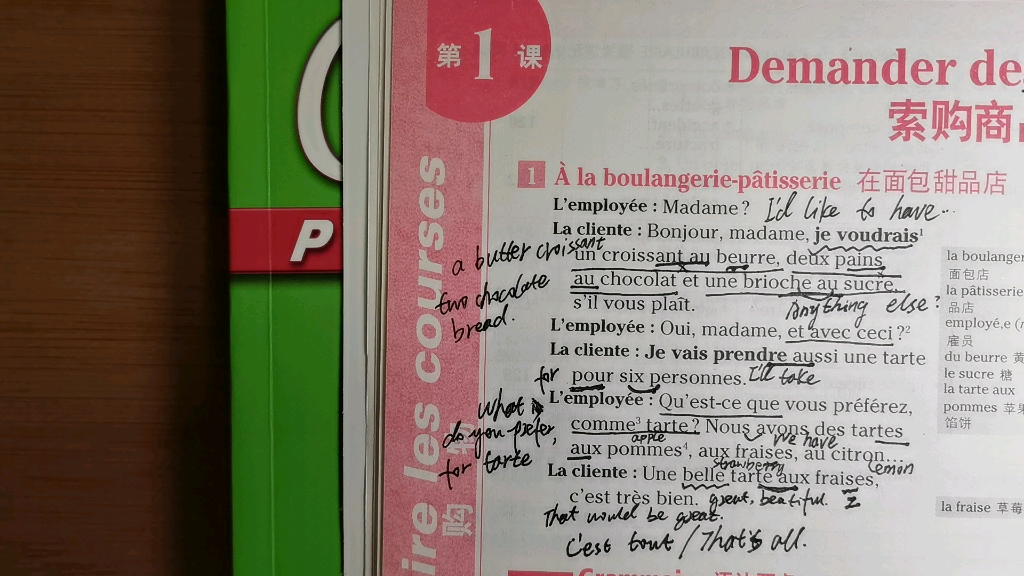 P
第 1 课
Demander de
索购商品
aire les courses
购物
1 À la boulangerie-pâtisserie 在面包甜品店
L'employée : Madame ? I'd like to have...
La cliente : Bonjour, madame, je voudrais¹
a butter croissant
un croissant au beurre, deux pains
two chocolate
bread.
au chocolat et une brioche au sucre,
s'il vous plaît. Anything else?
L'employée : Oui, madame, et avec ceci ?²
La cliente : Je vais prendre aussi une tarte
for pour six personnes. I'll take
L'employée : Qu'est-ce que vous préférez,
what
do you prefer,
for tarte
comme³ tarte ? Nous avons des tartes
apple we have
aux pommes⁴, aux fraises, au citron...
strawberry lemon
La cliente : Une belle tarte aux fraises,
c'est très bien. great, beautiful.
That would be great.
C'est tout / That's all.
la boulanger
面包店
la pâtisserie
品店
employé,e (
雇员
du beurre 黄
le sucre 糖
la tarte aux
pommes 苹果
馅饼
la fraise 草莓